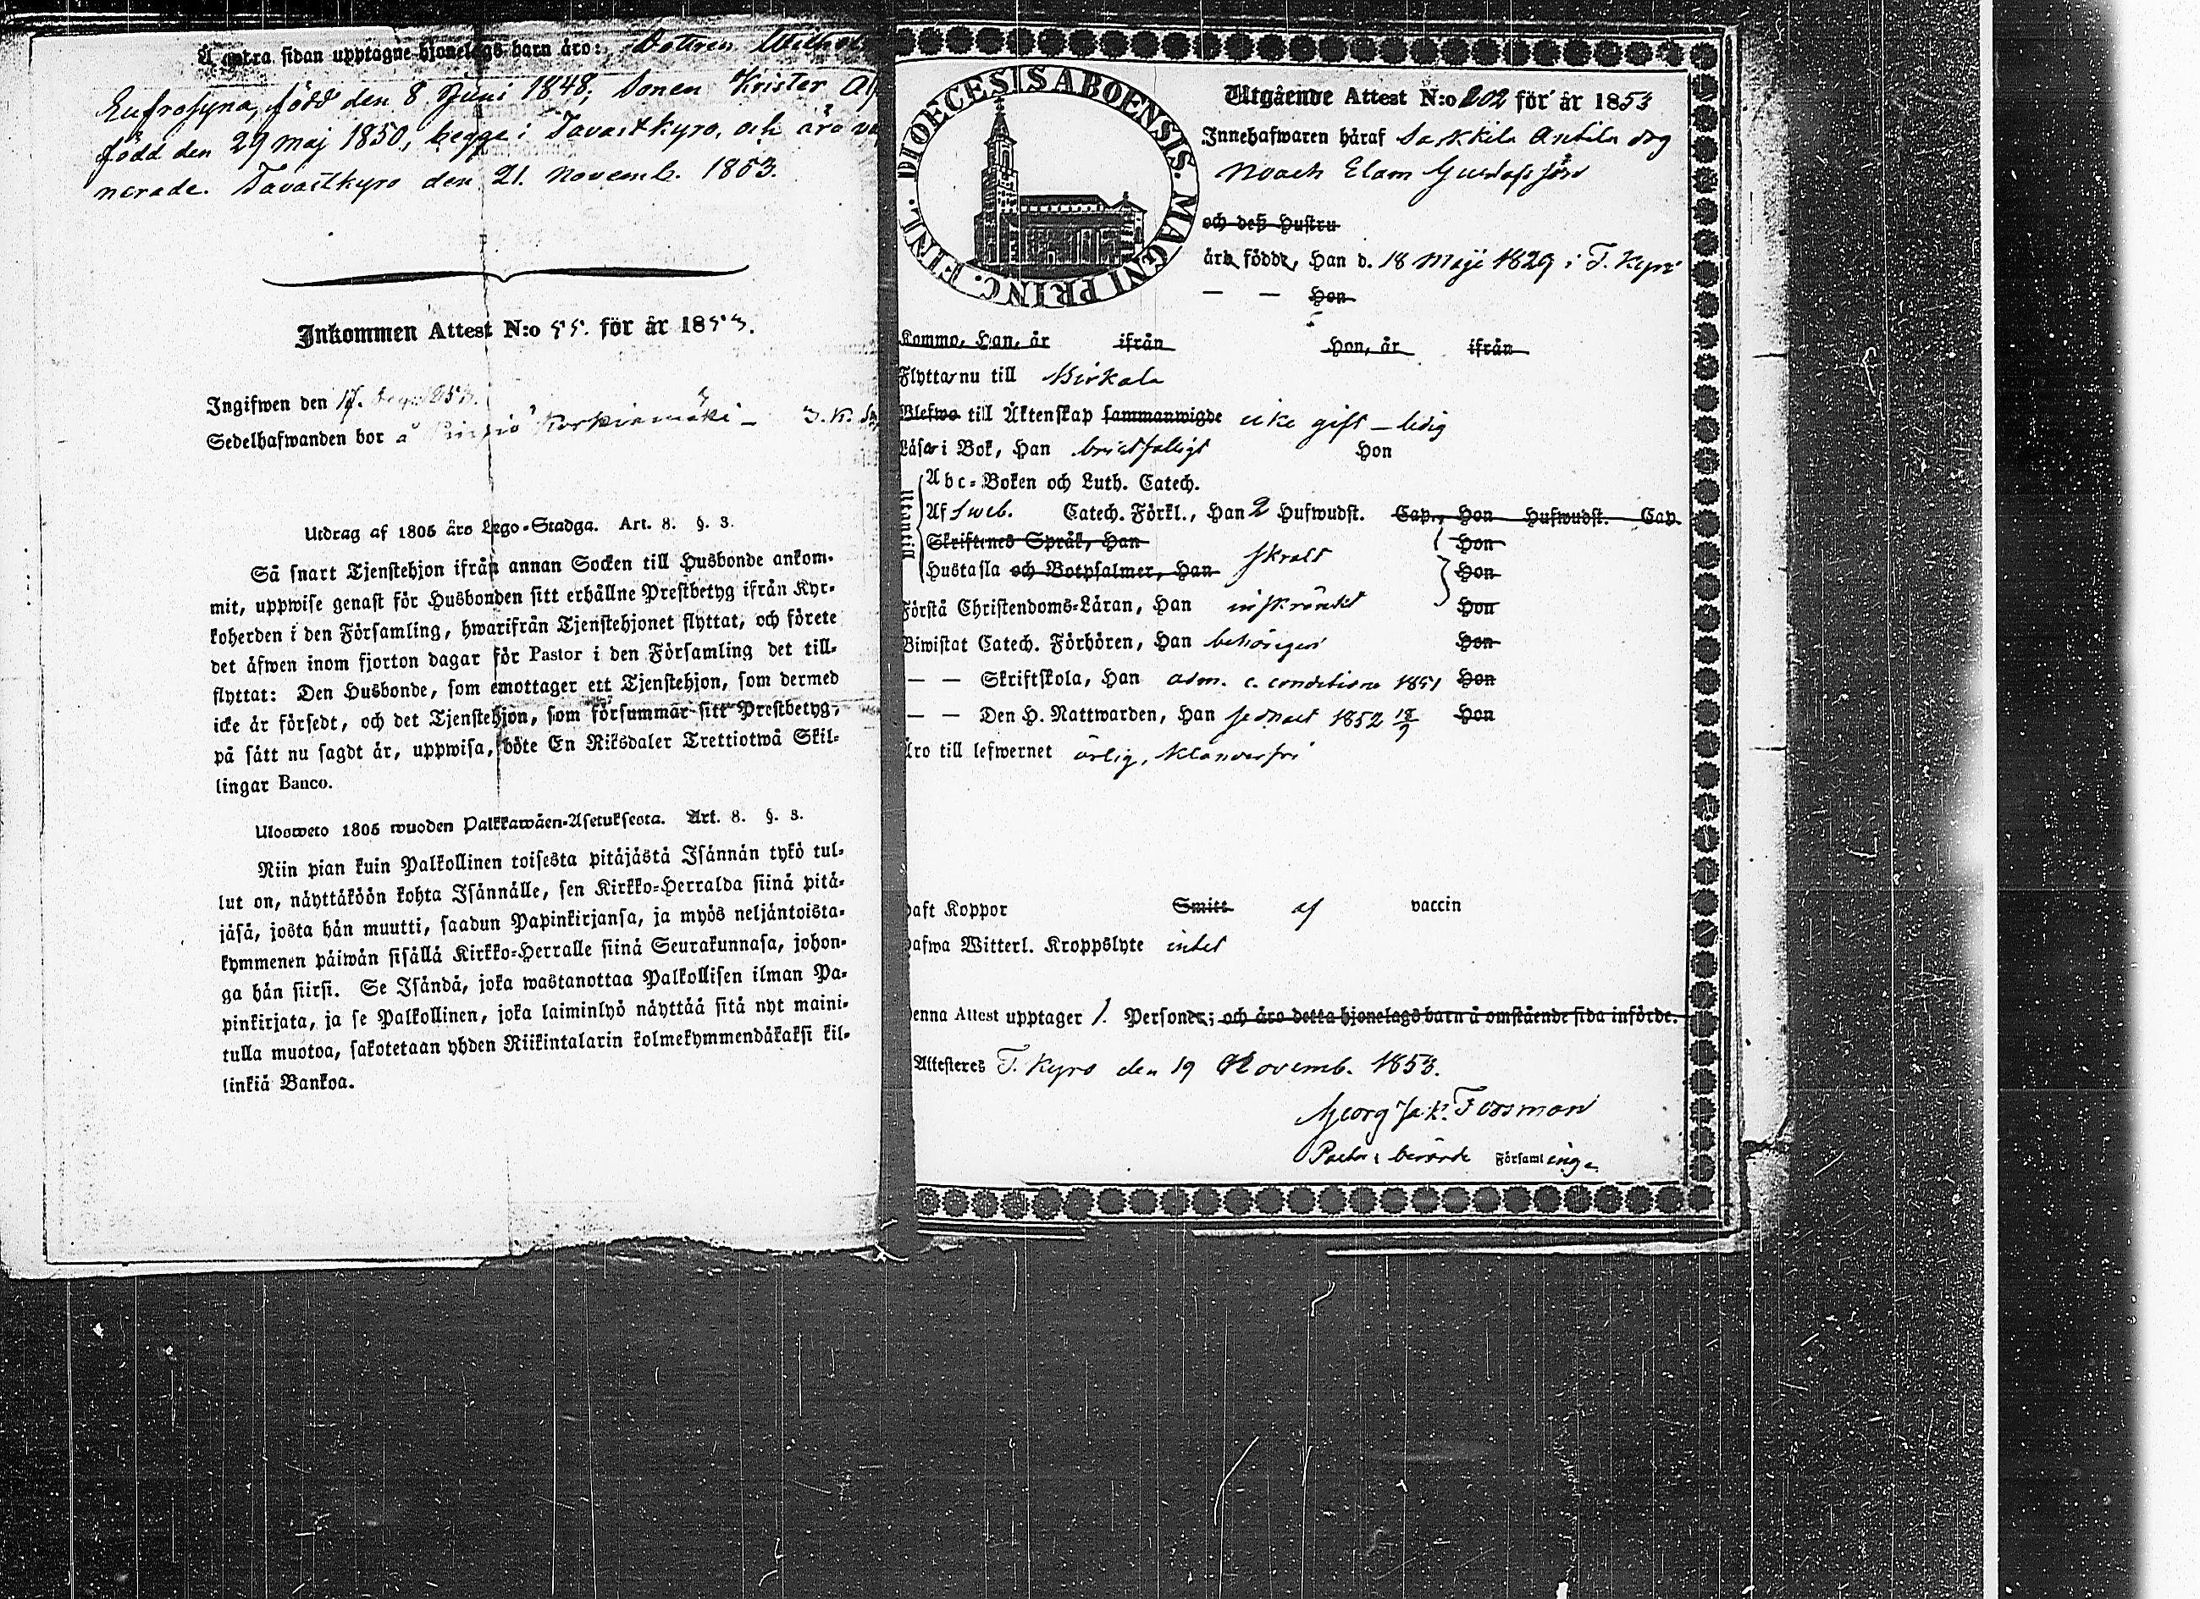 Å andra sidan upptagne hjonelags barn äro: Dottren
Eufrosyna, född den 8 Juni 1848; Sonen Krister
född den 29 Maj 1850, begge i Tavastkyro, och äro
nerade. Tavastkyro den 21. Novemb. 1853.
Inkommen Attest N:o 55. för år 1853.
Ingifwen den 17.
Sedelhafwanden bor å Korkiamäki
Utdrag af 1805 års Lego-Stadga. Art. 8. §. 3.
Så snart Tjenstehjon ifrån annan Socken till Husbonde ankom-
mit, uppwise genast för Husbonden sitt erhållne Prestbetyg ifrån Kyr-
koherden i den Församling, hwarifrån Tjenstehjonet flyttat, och förete
det äfwen inom fjorton dagar för Pastor i den Församling det till-
flyttat: Den Husbonde, som emottager ett Tjenstehjon, som dermed
icke är försedt, och det Tjenstehjon, som försummar sitt Prestbetyg,
på sätt nu sagdt är, uppwisa, böte En Riksdaler Trettiotwå Skil-
lingar Banco.
Ulosweto 1805 wuoden Palkkawäen-Asetuksesta. Art. 8. §. 3.
Niin pian kuin Palkollinen toisesta pitäjästä Isännän tykö tul-
lut on, näyttäköön kohta Isännälle, sen Kirkko-Herralda siinä pitä-
jäsä, josta hän muutti, saadun Papinkirjansa, ja myös neljäntoista-
kymmenen päiwän sisällä Kirkko-Herralle siinä Seurakunnasa, johon-
ga hän siirsi. Se Isändä, joka wastanottaa Palkollisen ilman Pa-
pinkirjata, ja se Palkollinen, joka laiminlyö näyttää sitä nyt maini-
tulla muotoa, sakotetaan yhden Riikintalarin kolmekymmendäkaksi kil-
linkiä Bankoa.
DIOECESIS ABOENSIS. MAGNI PRINC. FINL.
Utgående Attest N:o 202 för år 1853
Innehafwaren häraf Sarkkila Anttila drg
Noach Elam Gustafsson
och deß Hustru
äro födde, Han d. 18 Maji 1829 i T. Kyro
— — Hon
Kommo, Han, år ifrån Hon, år ifrån
Flytta nu till Birkala
Blefwo till Äktenskap sammanwigde icke gift – ledig
Läsa i Bok, Han bristfälligt Hon
Abc-Boken och Luth. Catech.
Af Sweb. Catech. Förkl., Han 2 Hufwudst. Cap., Hon Hufwudst. Cap.
Skriftenes Språk, Han Hon
Hustafla och Botpsalmer, Han svagt Hon
Förstå Christendoms-Läran, Han inskränkt Hon
Biwistat Catech. Förhören, Han behörigen Hon
— — Skriftskola, Han adm. c. conditione 1851 Hon
— — Den H. Nattwarden, Han sednast 1852 18/9 Hon
Äro till lefwernet ärlig, klanderfri
Haft Koppor Smitt af vaccin
Hafwa Witterl. Kroppslyte intet
Denna Attest upptager 1. Personer; och äro detta hjonelags barn å omstående sida införde.
Attesteres T. Kyro den 19 Novemb. 1853.
Georg Jak. Forsman
Pastor i berörde Församlinge